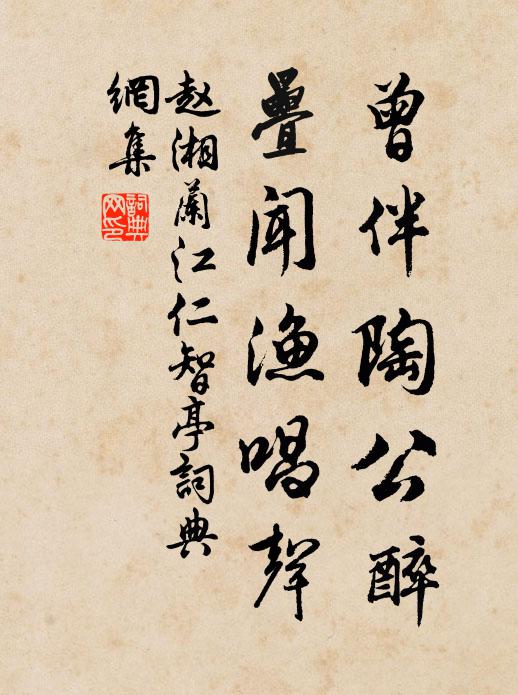 曾伴陶公醉
疊聞漁唱聲
赵湘蘭江仁智亭詞典
網集
詞典
网印